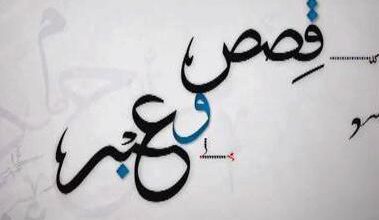 قِصص
و
عبر